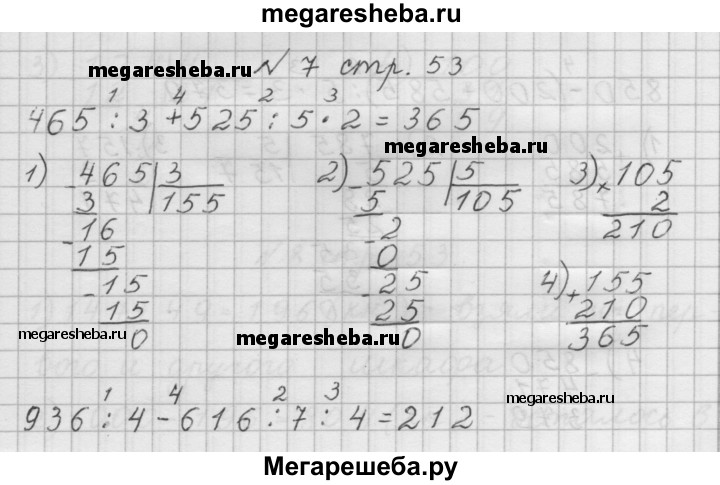 megaresheba.ru
megaresheba.ru № 7 стр. 53
1 4 2 3
465 : 3 + 525 : 5 · 2 = 365
1) - 465 | 3
3 155
- 16
15
- 15
15
0
2) - 525 | 5
5 105
- 2
0
- 25
25
0
3) × 105
2
210
4) + 155
210
365
megaresheba.ru
megaresheba.ru
megaresheba.ru
1 4 2 3
936 : 4 - 616 : 7 : 4 = 212
Мегарешеба.ру